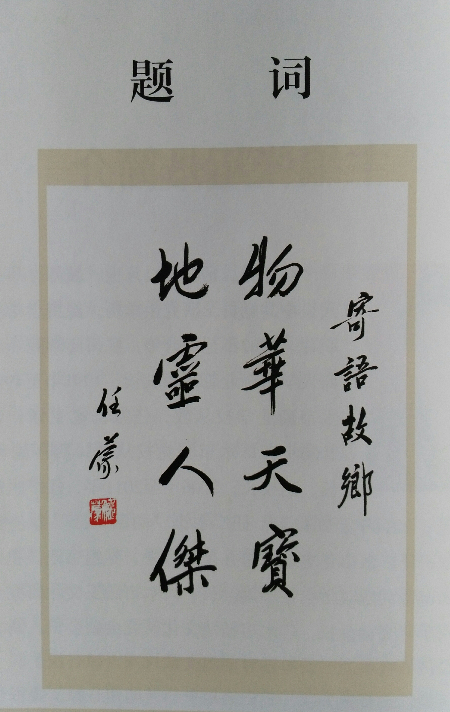 题词
寄語故鄉
物華天寳
地靈人傑
任蒙